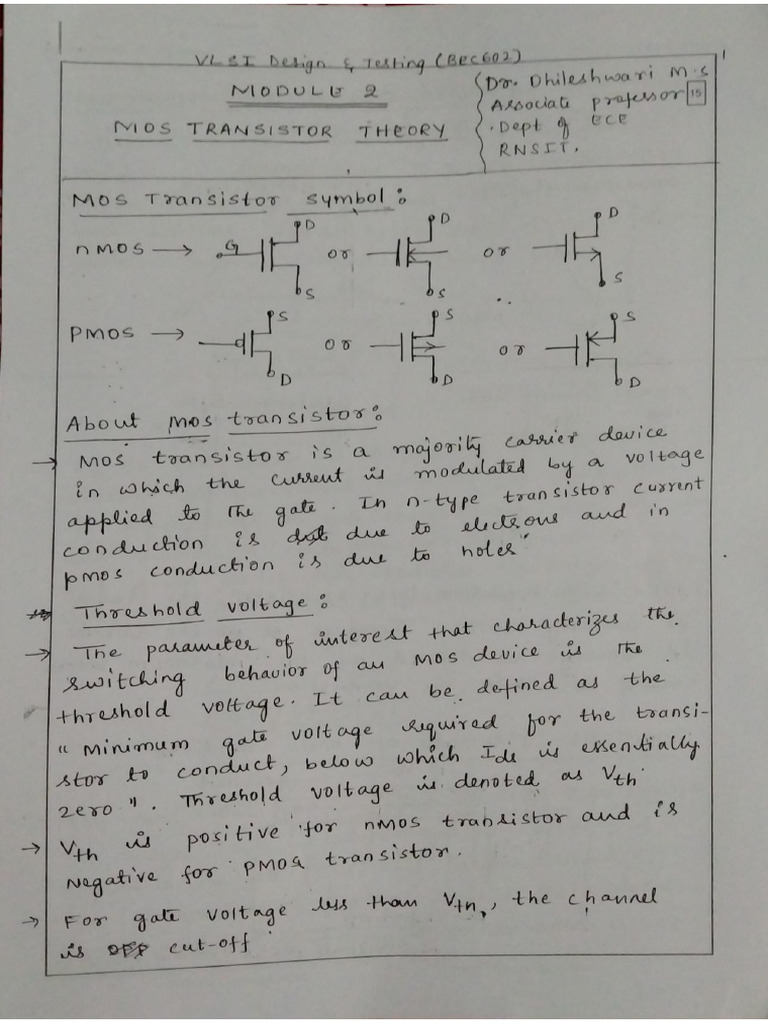 1
VLSI Design & Testing (BEC602)
MODULE 2
MOS TRANSISTOR THEORY
Dr. Dhileshwari M.S
Associate professor 15
Dept of ECE
RNSIT.
MOS Transistor symbol:
nMOS → G D S or D S or D S
PMOS → S D or S D or S D
About MOS transistor:
→ MOS transistor is a majority carrier device
in which the current is modulated by a voltage
applied to the gate. In n-type transistor current
conduction is due to electrons and in
pmos conduction is due to holes"
Threshold voltage:
→ The parameter of interest that characterizes the
switching behavior of an MOS device is the
threshold voltage. It can be defined as the
"Minimum gate voltage required for the transi-
stor to conduct, below which Ids is essentially
zero". Threshold voltage is denoted as Vth
→ Vth is positive for nMOS transistor and is
Negative for PMOS transistor.
→ For gate voltage less than Vtn, the channel
is cut-off